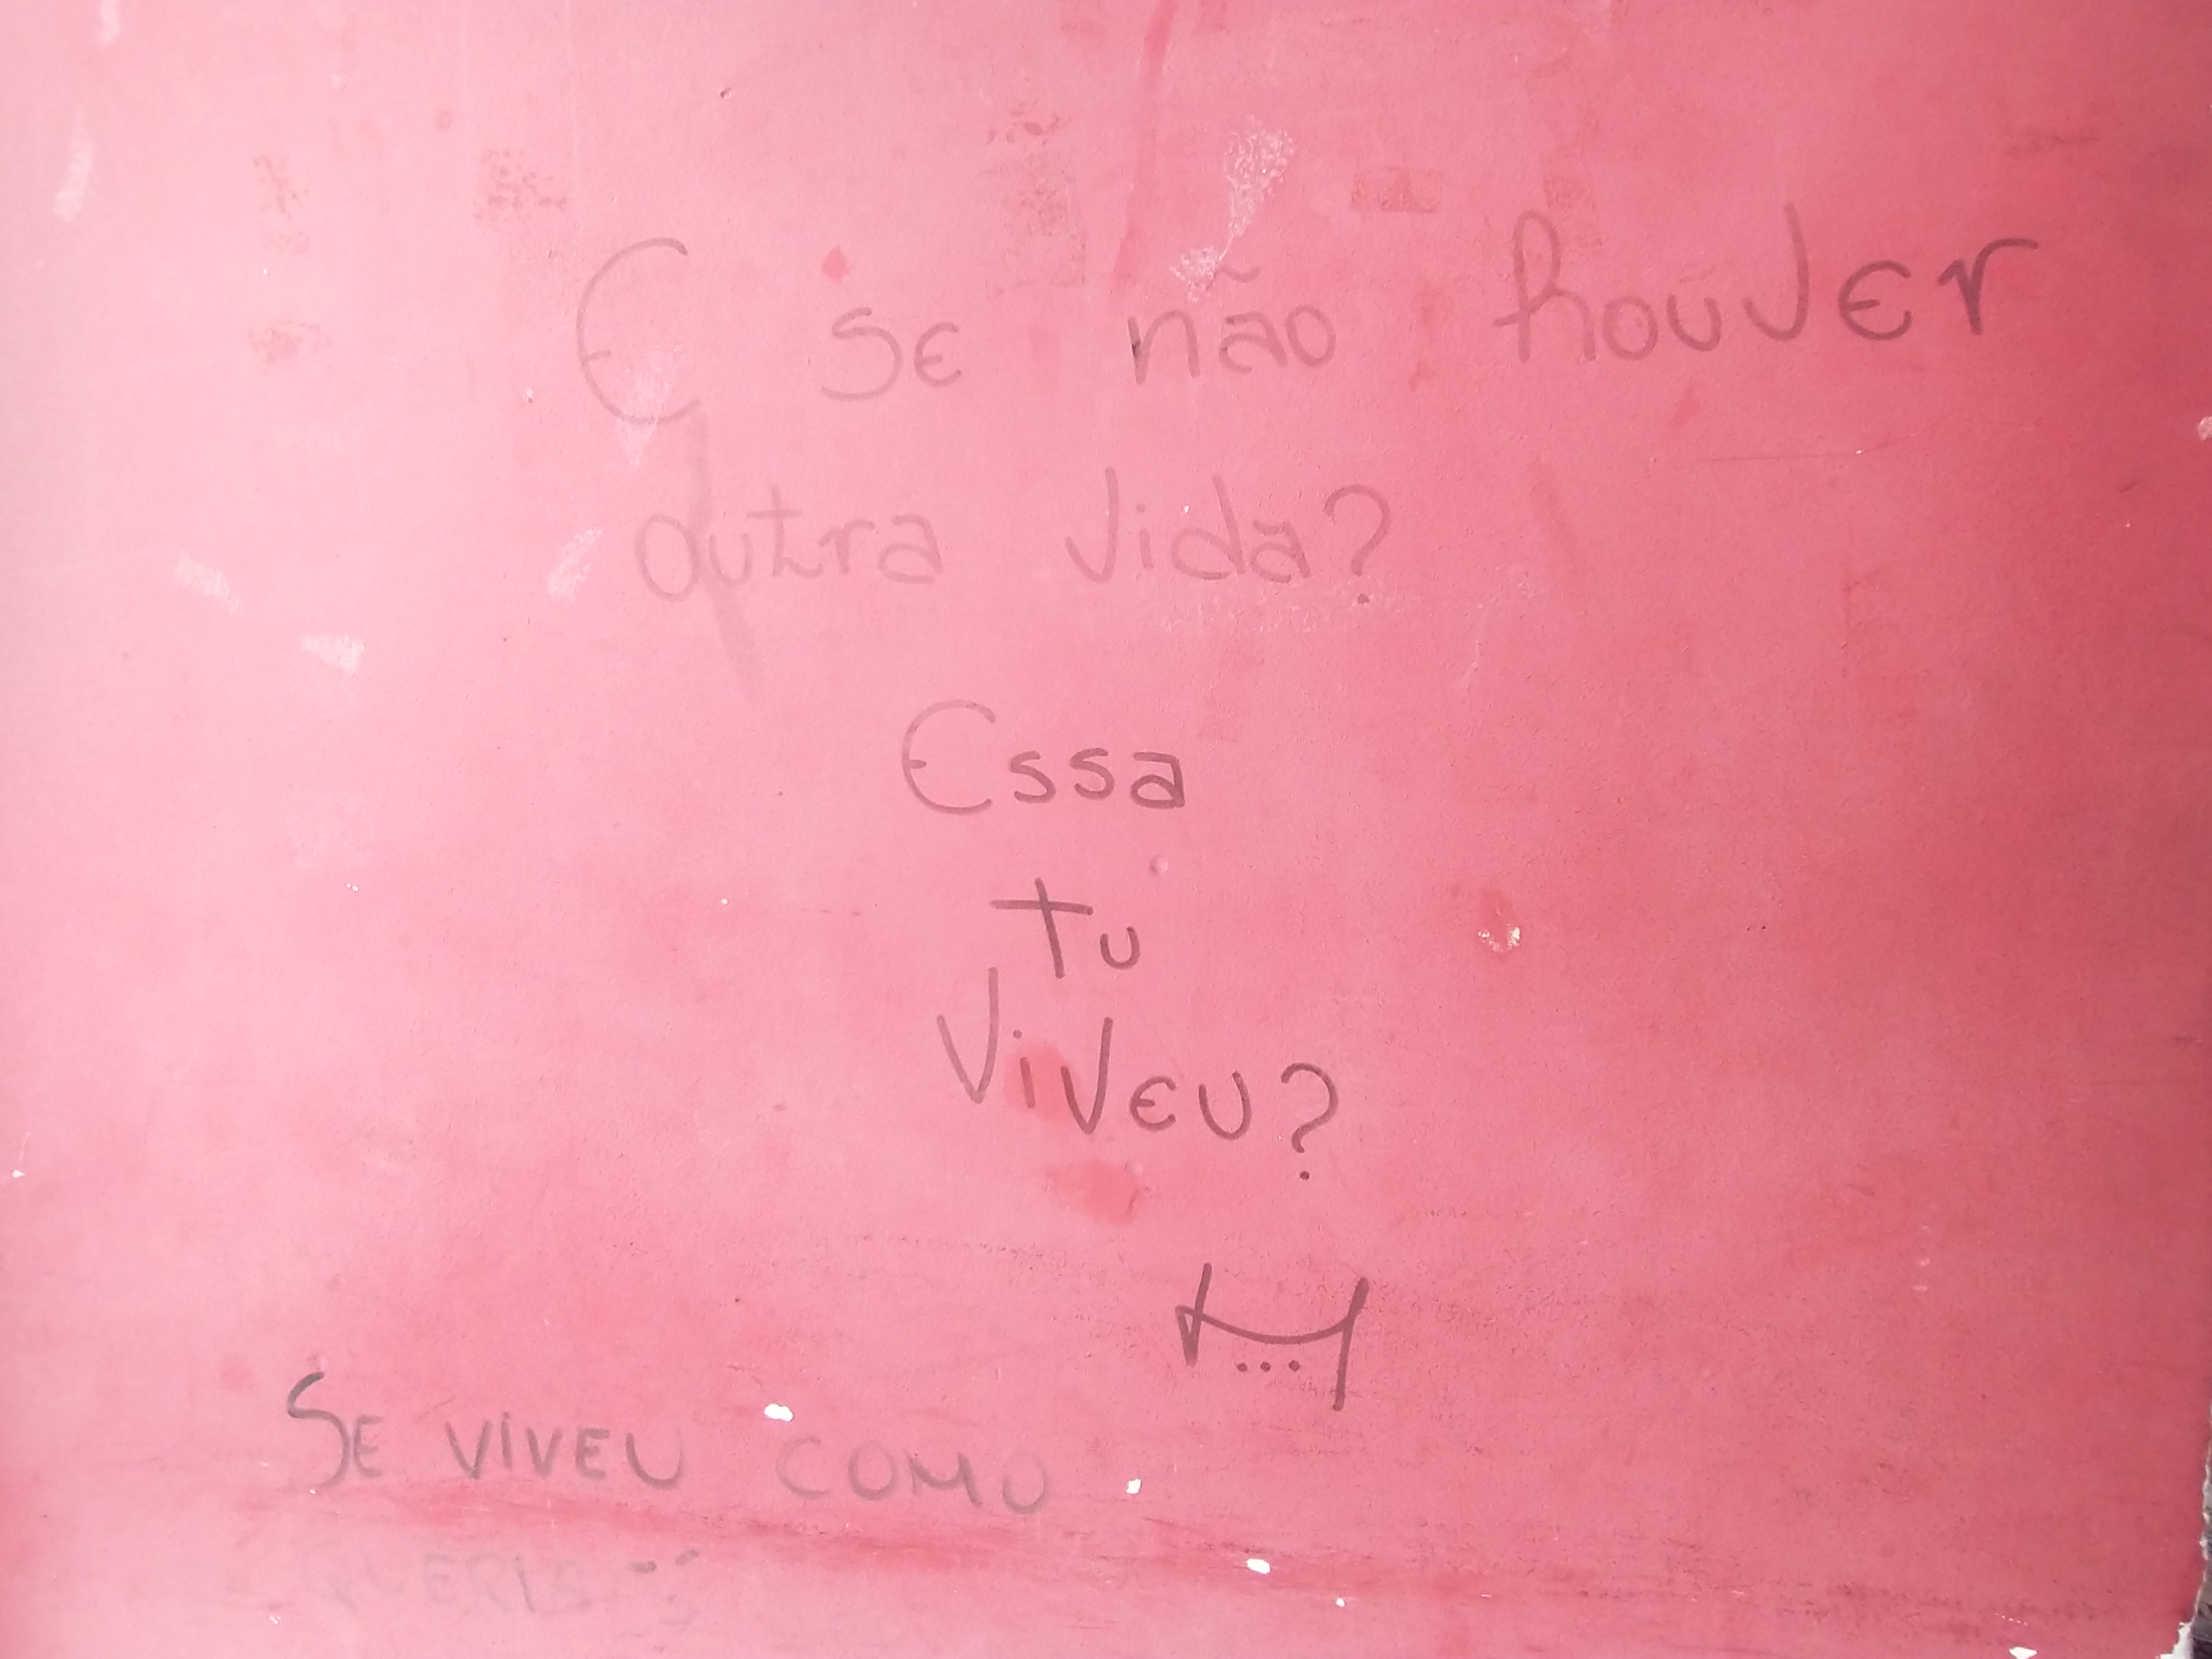 E se não houver
outra vida?
Essa
tu
viveu?
Se viveu como
queria